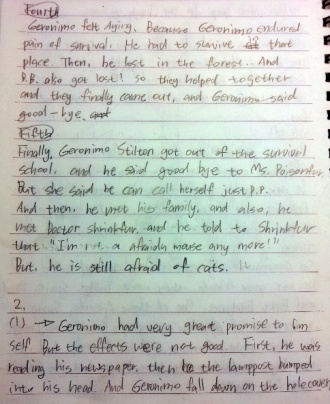 Fourth
Geronimo felt dying. Because Geronimo endured
pain of survival. He had to survive that
place. Then, he lost in the forest. And
P.P. also got lost! so they helped together
and they finally came out, and Geronimo said
good-bye.
Fifth
Finally, Geronimo Stilton got out of the survival
school. and he said good bye to Ms. Poisonfur
But she said he can call herself just P.P.
And then, he met his family, and also, he
met Doctor Shrinkfur. and he told to Shrinkfur
that "I'm not a afraidy mouse any more!"
But, he is still afraid of cats.
2.
(1) → Geronimo had very great promise to him
self. But the effects were not good. First, he was
reading his newspaper, then the lamppost bumped
into his head. And Geronimo fall down on the holecover